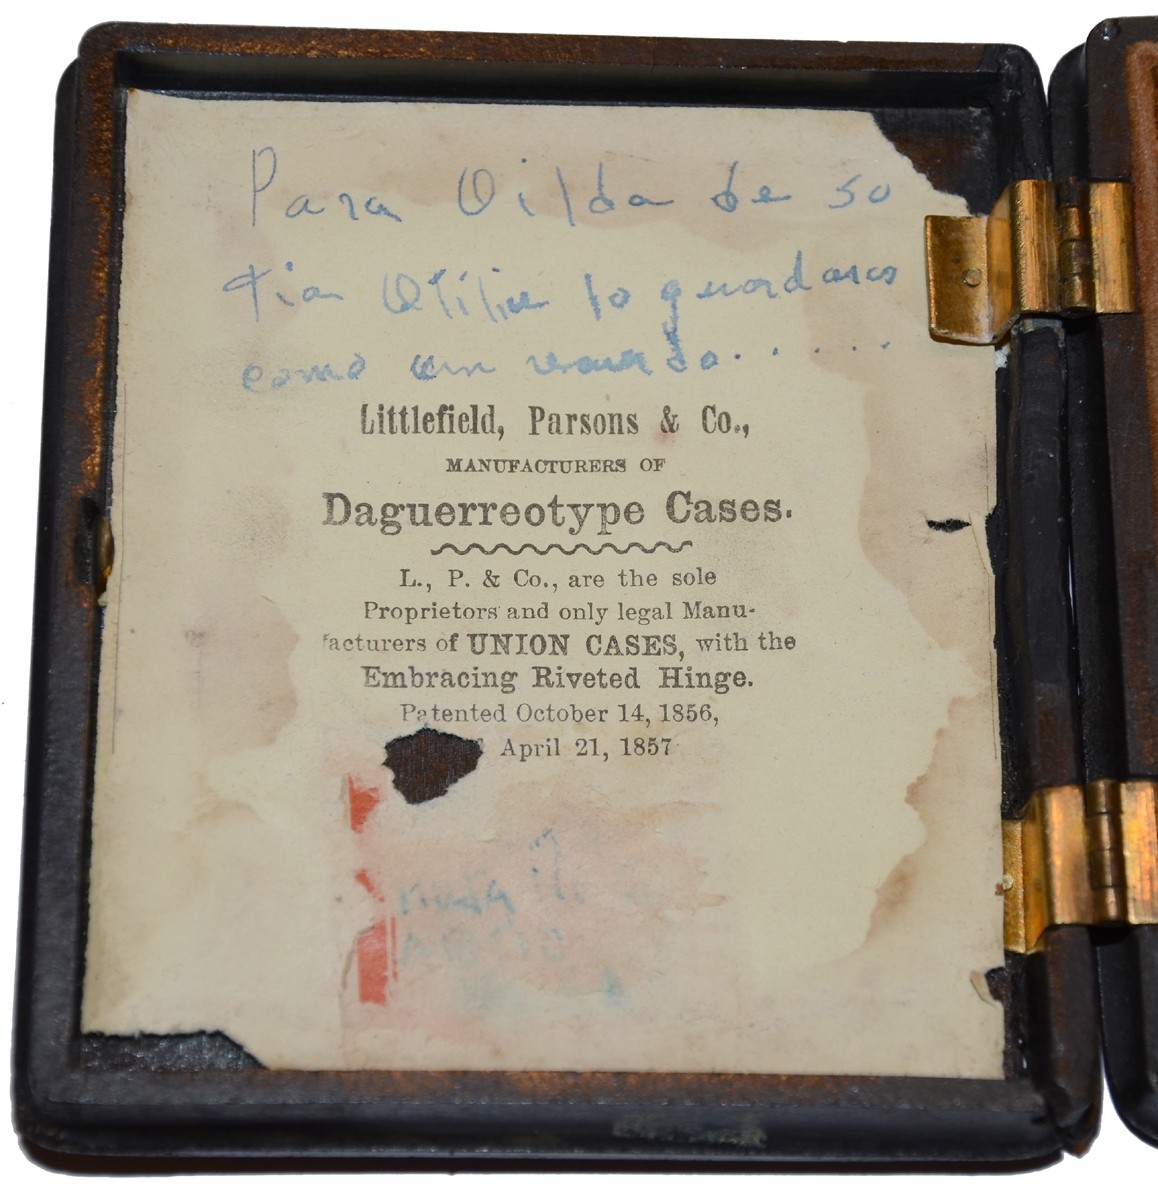 Para Oilda de so
tia Otilia lo guardaras
como un recuerdo.....
Littlefield, Parsons & Co.,
MANUFACTURERS OF
Daguerreotype Cases.
L., P. & Co., are the sole
Proprietors and only legal Manu-
facturers of UNION CASES, with the
Embracing Riveted Hinge.
Patented October 14, 1856,
April 21, 1857